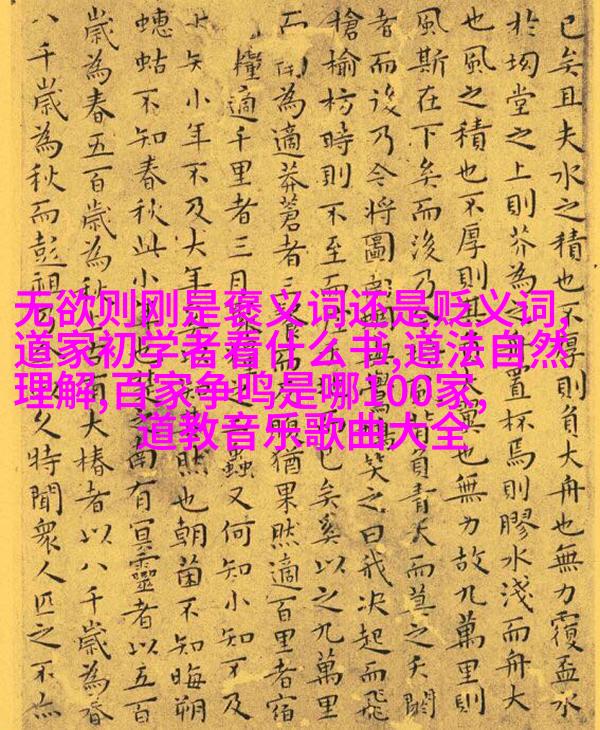 无欲则刚是褒义词还是贬义词,
道家初学者看什么书,道法自然
理解,百家争鸣是哪100家,
道教音乐歌曲大全
已矣且夫水之積也不厚則負大舟也無力覆盃水
於坳堂之上則芥為之舟置杯焉則膠水淺而舟大
也風之積也不厚則其負大翼也無力故九萬里則
風斯在下矣而後乃今背負青天而莫之夭閼
者而後乃今將圖南鳩笑之曰我決起而飛
槍榆枋時則不至而已矣奚以之九萬里
而南為適莽蒼者三猶果然適百里者宿
糧適千里者三月之二蟲又何知小知不及
大知小年不及大年奚知其然也朝菌不知晦朔
蟪蛄不知春秋此小年也之南有冥靈者以五百
歲為春五百歲為秋有大椿者以八千歲為春
八千歲為秋而彭祖乃久特聞衆人匹之不亦